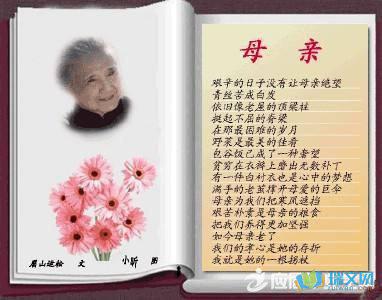 母 亲
艰辛的日子没有让母亲绝望
青丝苦成白发
依旧像老屋的顶梁柱
挺起不屈的脊梁
在那最困难的岁月
野菜是最美的佳肴
包谷饭已成了一种奢望
贫穷在衣裤上磨出无数补丁
有一件白衬衣也是心中的梦想
满手的老茧撑开母爱的巨伞
母亲为我们把寒风遮挡
艰苦朴素是母亲的粮食
把我们养得更加坚强
如今母亲老了
我们的孝心是她的存折
我就是她的一根拐枝
眉山逸松 文 小昕 图
瑞文网